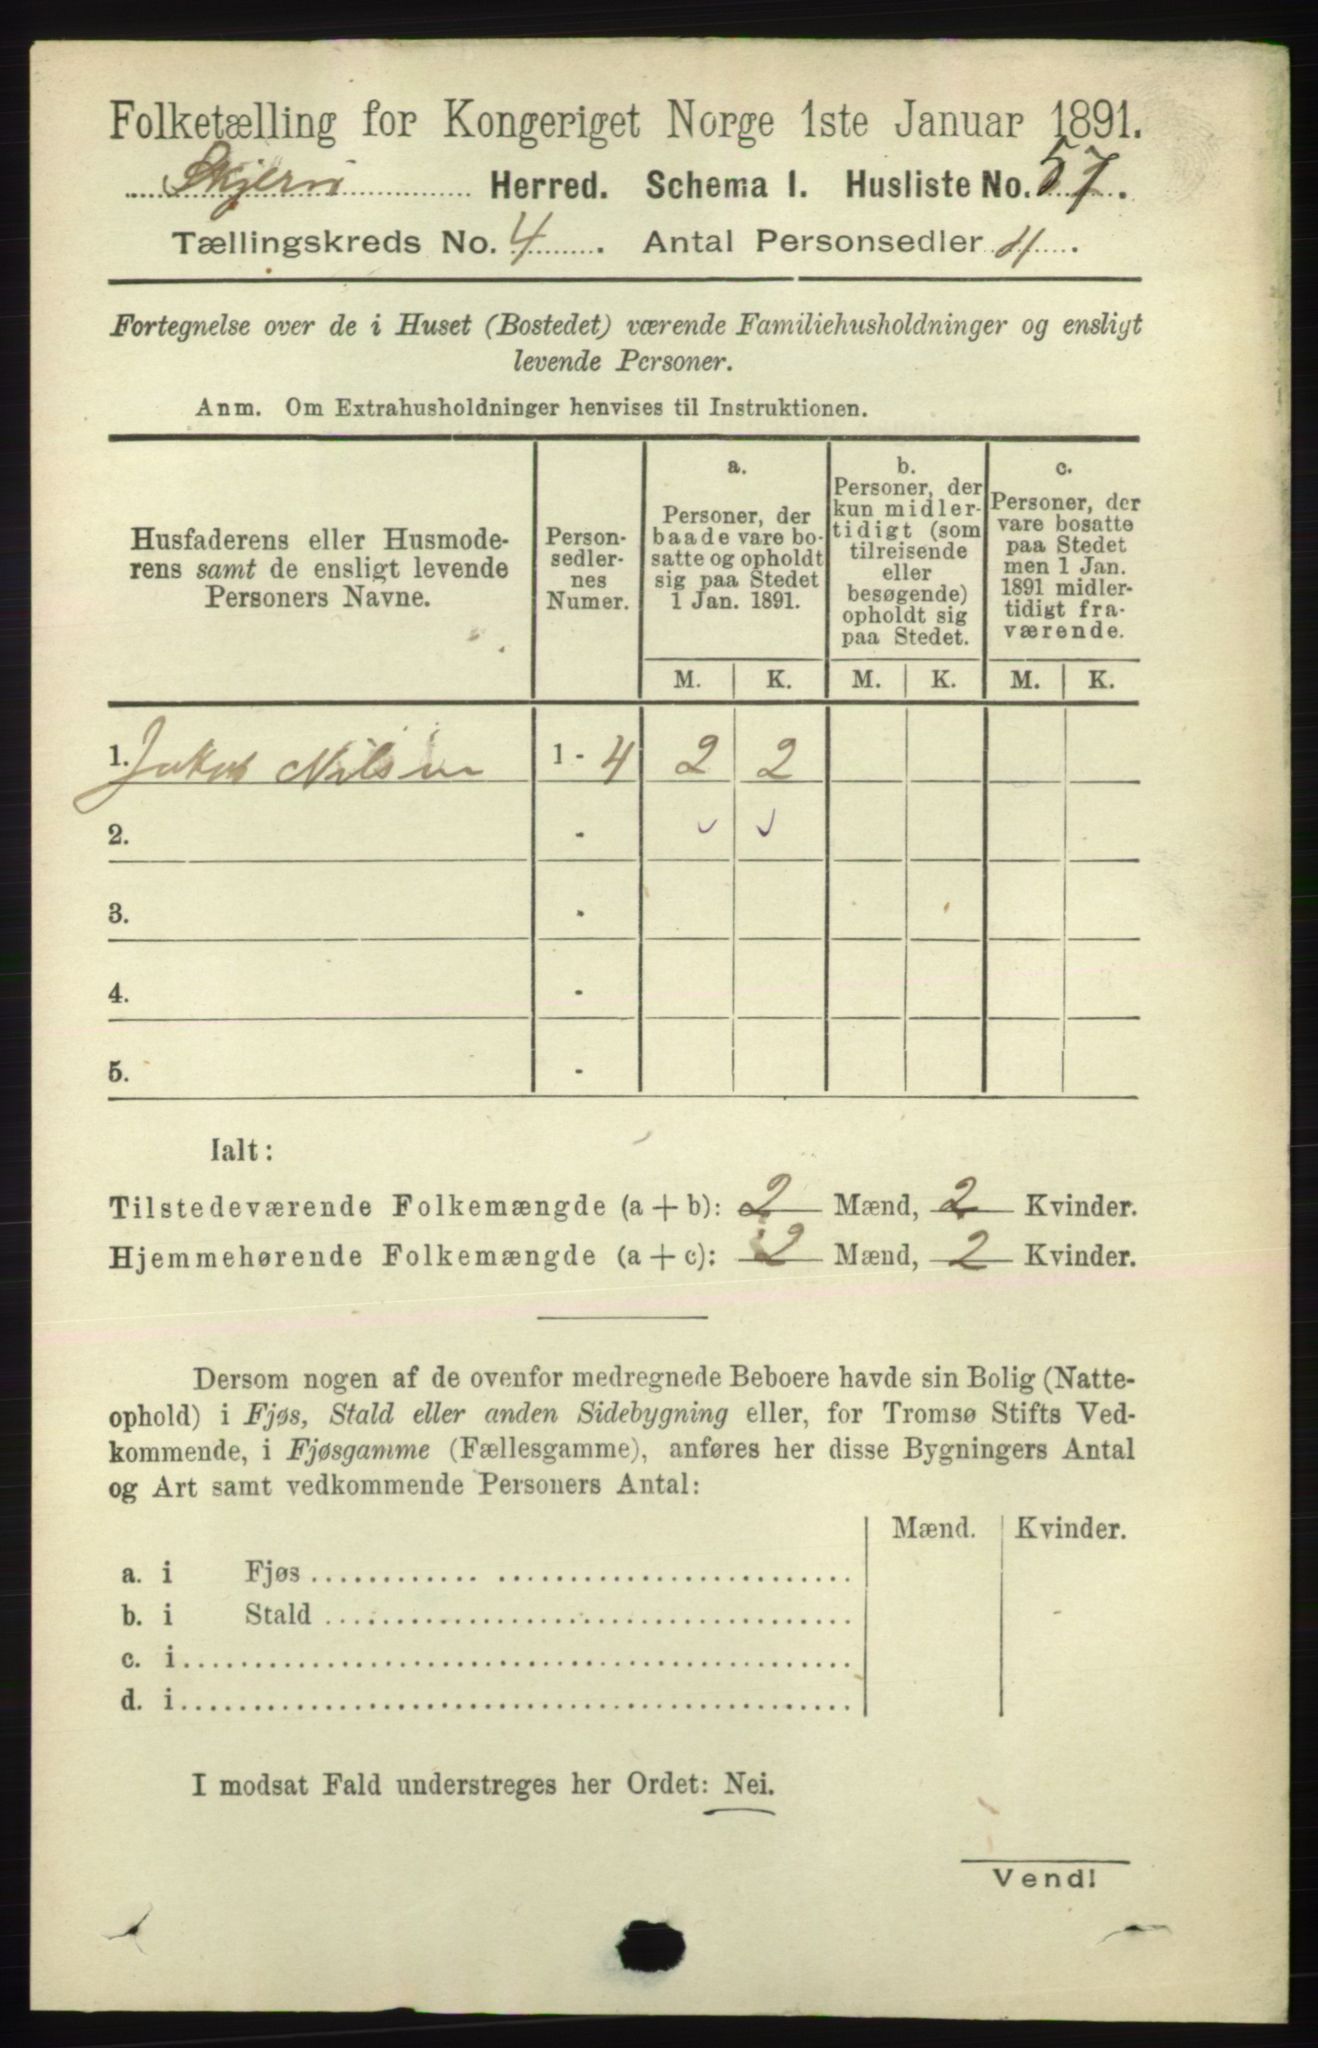 Folketælling for Kongeriget Norge 1ste Januar 1891.
Skjern Herred. Schema I. Husliste No. 57.
Tællingskreds No. 4. Antal Personsedler 4.
Fortegnelse over de i Huset (Bostedet) værende Familiehusholdninger og ensligt
levende Personer.
Anm. Om Extrahusholdninger henvises til Instruktionen.
Husfaderens eller Husmode-
rens samt de ensligt levende
Personers Navne.
Person-
sedler-
nes
Numer.
a.
Personer, der
baade vare bo-
satte og opholdt
sig paa Stedet
1 Jan. 1891.
b.
Personer, der
kun midler-
tidigt (som
tilreisende
eller
besøgende)
opholdt sig
paa Stedet.
c.
Personer, der
vare bosatte
paa Stedet
men 1 Jan.
1891 midler-
tidigt fra-
værende.
M. K. M. K. M. K.
1. Jakob Nilsen 1 - 4 2 2
2. -
3. -
4. -
5. -
Ialt:
Tilstedeværende Folkemængde (a + b): 2 Mænd, 2 Kvinder.
Hjemmehørende Folkemængde (a + c): 2 Mænd, 2 Kvinder.
Dersom nogen af de ovenfor medregnede Beboere havde sin Bolig (Natte-
ophold) i Fjøs, Stald eller anden Sidebygning eller, for Tromsø Stifts Ved-
kommende, i Fjøsgamme (Fællesgamme), anføres her disse Bygningers Antal
og Art samt vedkommende Personers Antal:
Mænd. Kvinder.
a. i Fjøs
b. i Stald
c. i
d. i
I modsat Fald understreges her Ordet: Nei.
Vend!